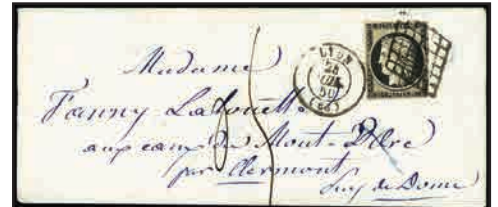 LYON
50
(68)
Madame
Fanny
aux eaux du Mont-Dore
par Clermont
Puy de Dome